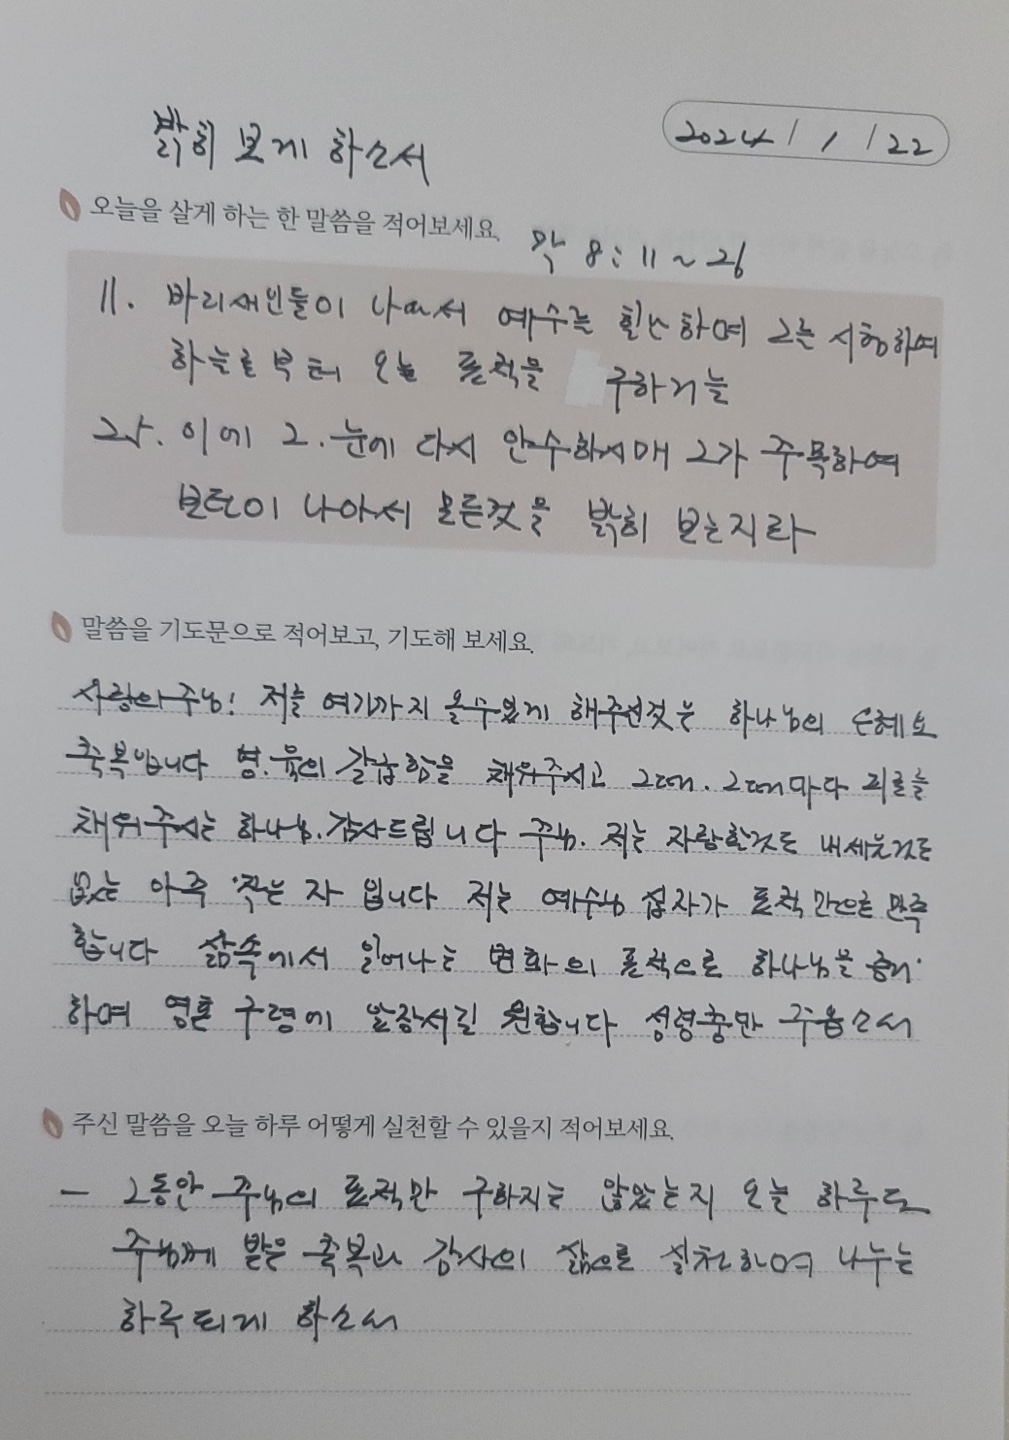 밝히 보게 하소서
2024 / 1 / 22
오늘을 살게 하는 한 말씀을 적어보세요.
막 8:11~26
11. 바리새인들이 나와서 예수를 힐난하며 그를 시험하여
하늘로부터 오는 표적을 구하거늘
25. 이에 그 눈에 다시 안수하시매 그가 주목하여
보더니 나아서 모든것을 밝히 보는지라
말씀을 기도문으로 적어보고, 기도해 보세요.
사랑의 주님! 저를 여기까지 올수있게 해주신것은 하나님의 은혜요
축복입니다 영.육의 갈급함을 채워주시고 그때.그때마다 필요를
채워주시는 하나님.감사드립니다 주님. 저는 자랑할것도 내세울것도
없는 아주 작은 자 입니다 저는 예수님 십자가 표적만으로 만족
합니다 삶속에서 일어나는 변화의 표적으로 하나님을 증거
하며 영혼 구령에 앞장서길 원합니다 성령충만 주옵소서
주신 말씀을 오늘 하루 어떻게 실천할 수 있을지 적어보세요.
- 그동안 주님의 표적만 구하지는 않았는지 오늘 하루도
주님께 받은 축복과 감사의 삶으로 실천하여 나누는
하루되게 하소서